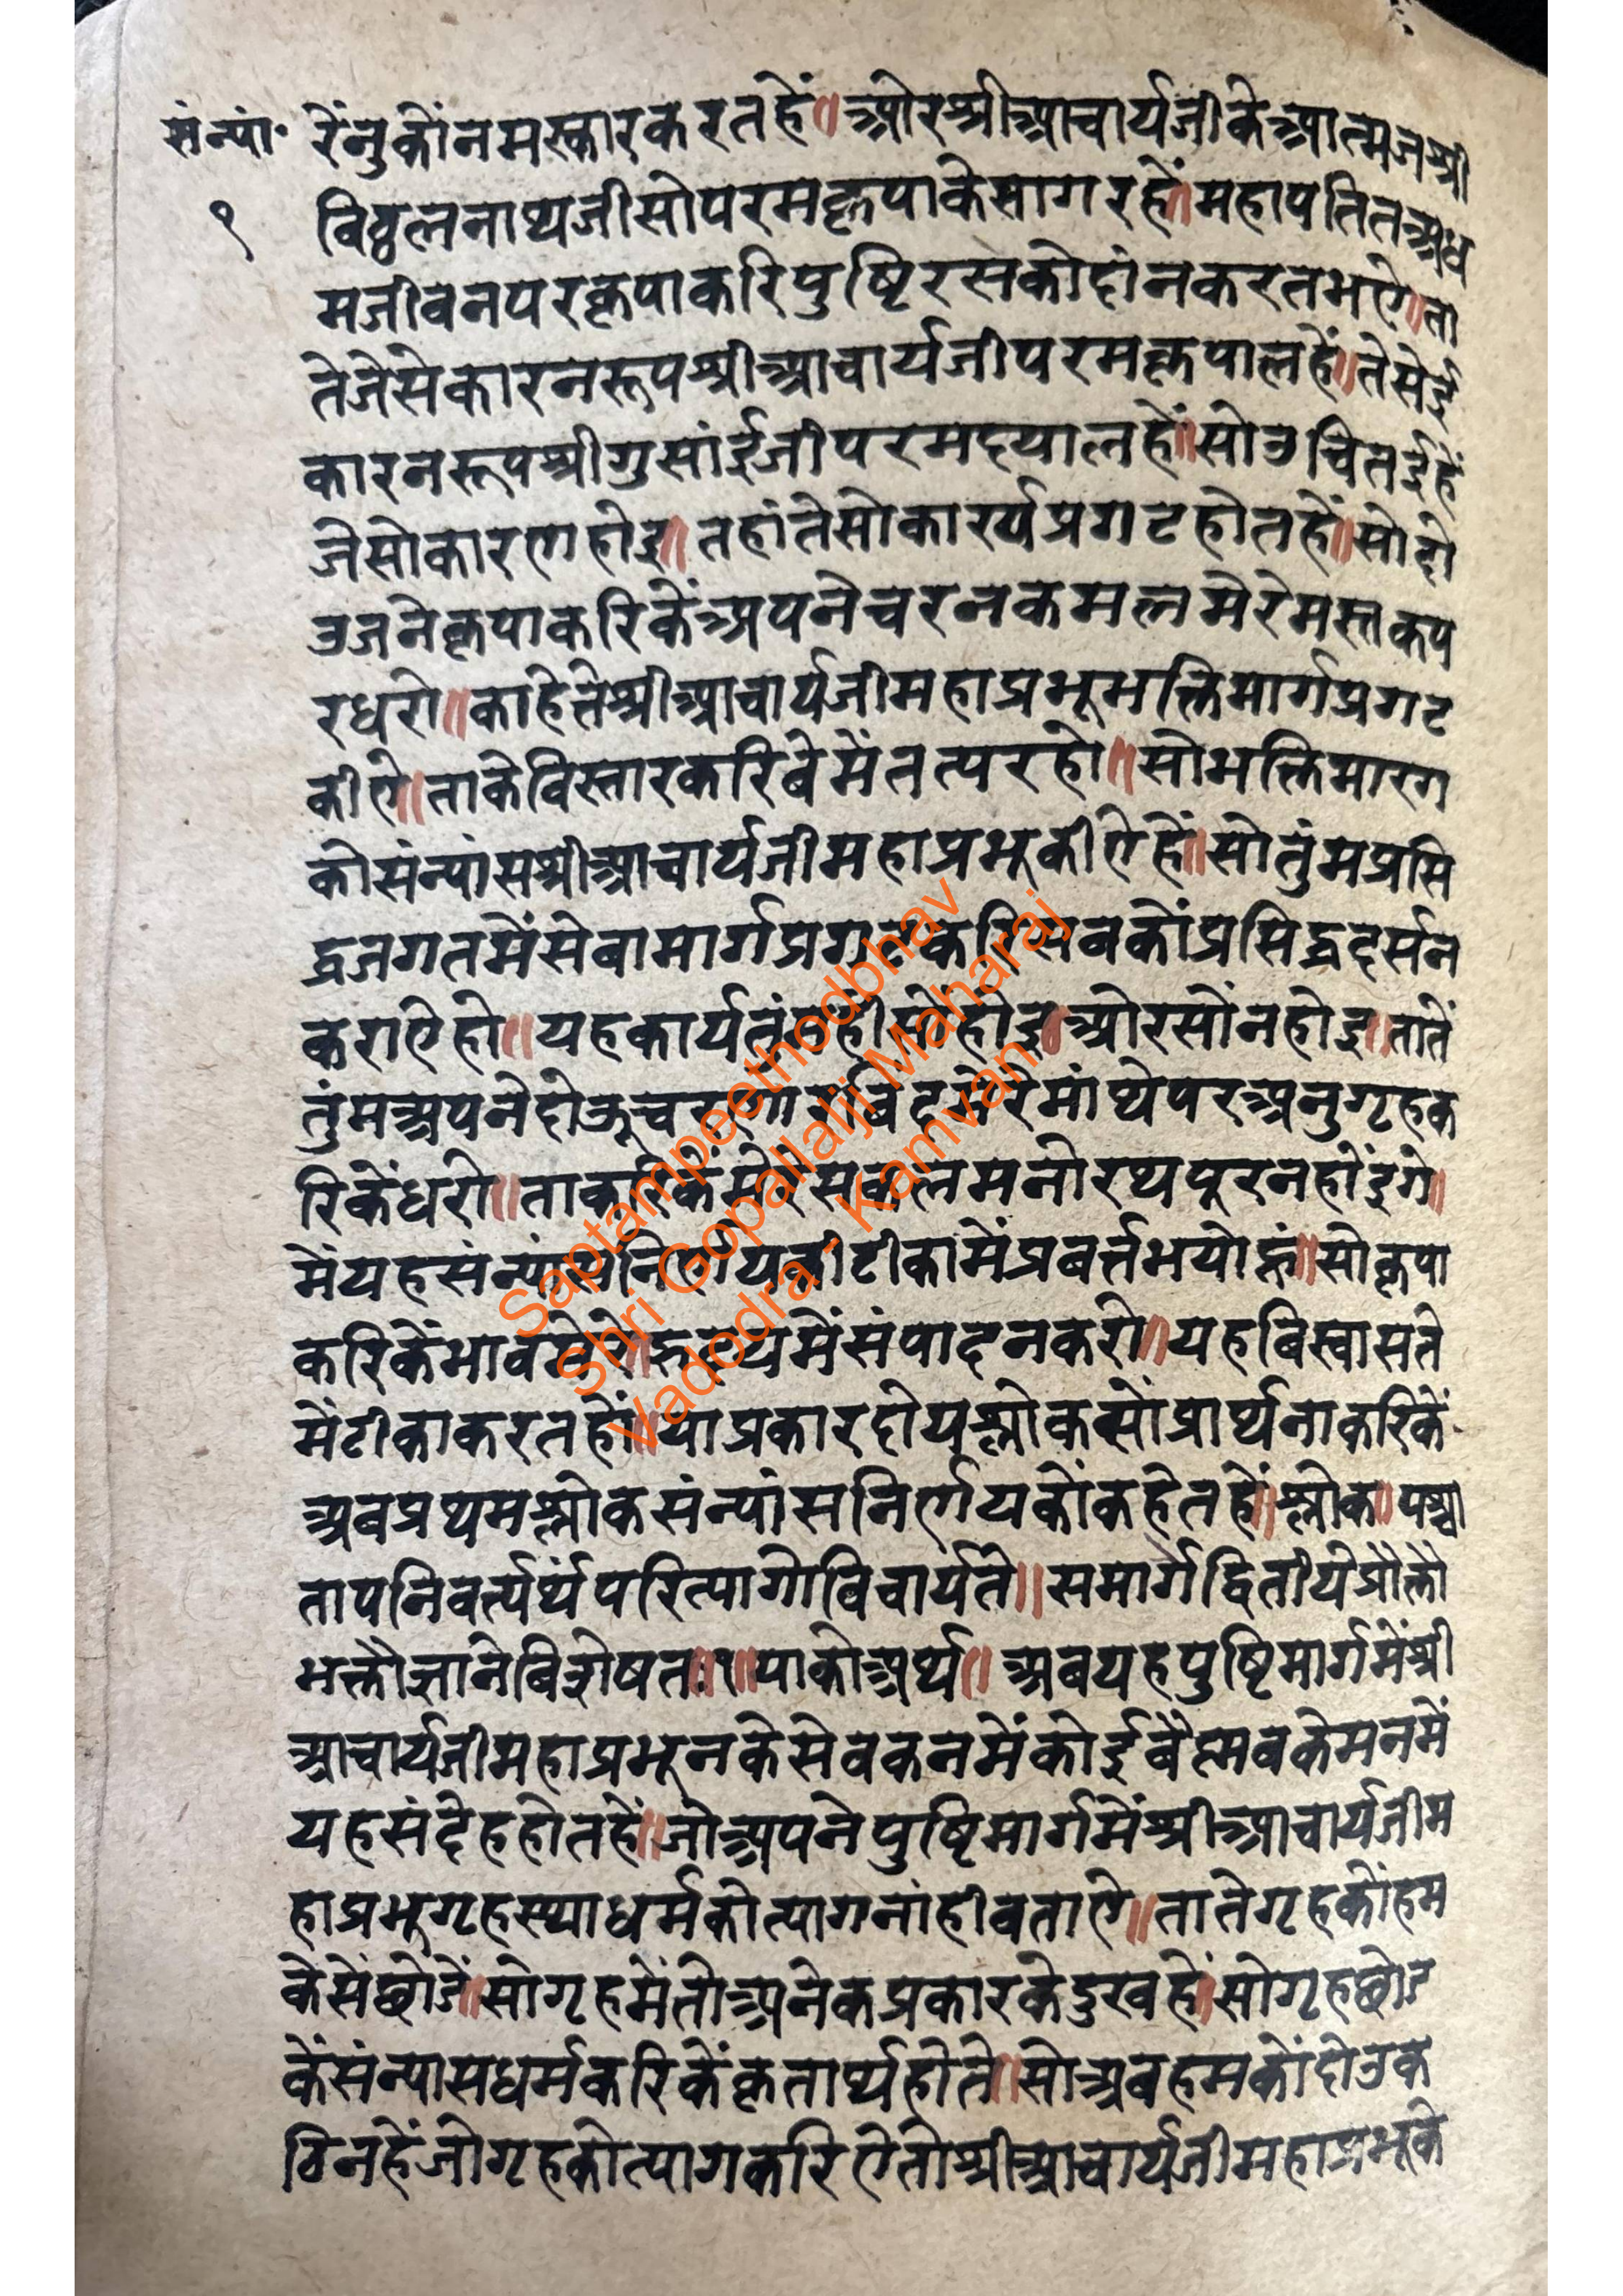 संन्यां॰ रेंनुकोंनमस्कारकरतहें॥ओरश्रीआचार्यजीकेआत्मजश्री
१ विठ्ठलनाथजीसोपरमकृपाकेसागरहें॥महापतितअध
मजीवनपरकृपाकरिपुष्टिरसकोदांनकरतभऐ॥ता
तेजेसेकारनरूपश्रीआचार्यजीपरमकृपालहें॥तेसेई
कारनरूपश्रीगुसांईजीपरमदयालहें॥सोउचितईहें
जेसोकारणहोइ॥तहांतेसोकार्यप्रगटहोतहें॥सोदो
उजनेकृपाकरिकेंअपनेचरनकमलमेरेमस्तकप
रधरो॥काहेतेश्रीआचार्यजीमहाप्रभूभक्तिमार्गप्रगट
कीऐ॥ताकेविस्तारकरिबेमेंतत्परहो॥सोभक्तिमारग
कोसंन्यांसश्रीआचार्यजीमहाप्रभुकीऐहें॥सोतुंमप्रसि
द्धजगतमेंसेवामार्गप्रगटकरिसबकोंप्रसिद्धदर्सन
कराऐहो॥यहकार्यतुंमहीसोंहोइ॥ओरसोंनहोइ॥तातें
तुंमअपनेदोऊचरणारविंदमेरेमांथेपरअनुगृहक
रिकेंधरो॥ताकरिकेंमेरेसकलमनोरथपूरनहोंइगे॥
मेंयहसंन्यांसनिर्णयकीटीकामेंप्रबर्त्तभयोहूं॥सोकृपा
करिकेंभावमेरेहृदयमेंसंपादनकरो॥यहबिस्वासते
मेंटीकाकरतहों॥याप्रकारदोयश्लोकसोंप्रार्थनाकरिकें
अबप्रथमश्लोकसंन्यांसनिर्णयकोंकहेतहें॥श्लोक॥पश्चा
तापनिवर्त्यर्थंपरित्यागोविचार्यते॥समार्गेद्वितीयेप्रोक्तौ
भक्तौज्ञानेबिशेषतः॥१॥याकोअर्थ॥अबयहपुष्टिमार्गमेंश्री
आचार्यजीमहाप्रभूनकेसेवकनमेंकोईबैष्णवकेमनमें
यहसंदेहहोतहें॥जोअपनेपुष्टिमार्गमेंश्रीआचार्यजीम
हाप्रभुगृहस्थाधर्मकोत्यागनांहीबताऐ॥तातेगृहकोंहम
केसेंछोडें॥सोगृहमेंतोअनेकप्रकारकेदुखहें॥सोगृहछोड
केंसंन्यासधर्मकरिकेंकृतार्थहोते॥सोअबहमकोंदोउक
ठिनहेंजोगृहकोत्यागकरिऐतोश्रीआचार्यजीमहाप्रभूके
Saptampeethodbhav
Shri Gopallalji Maharaj
Vadodra - Kamvan